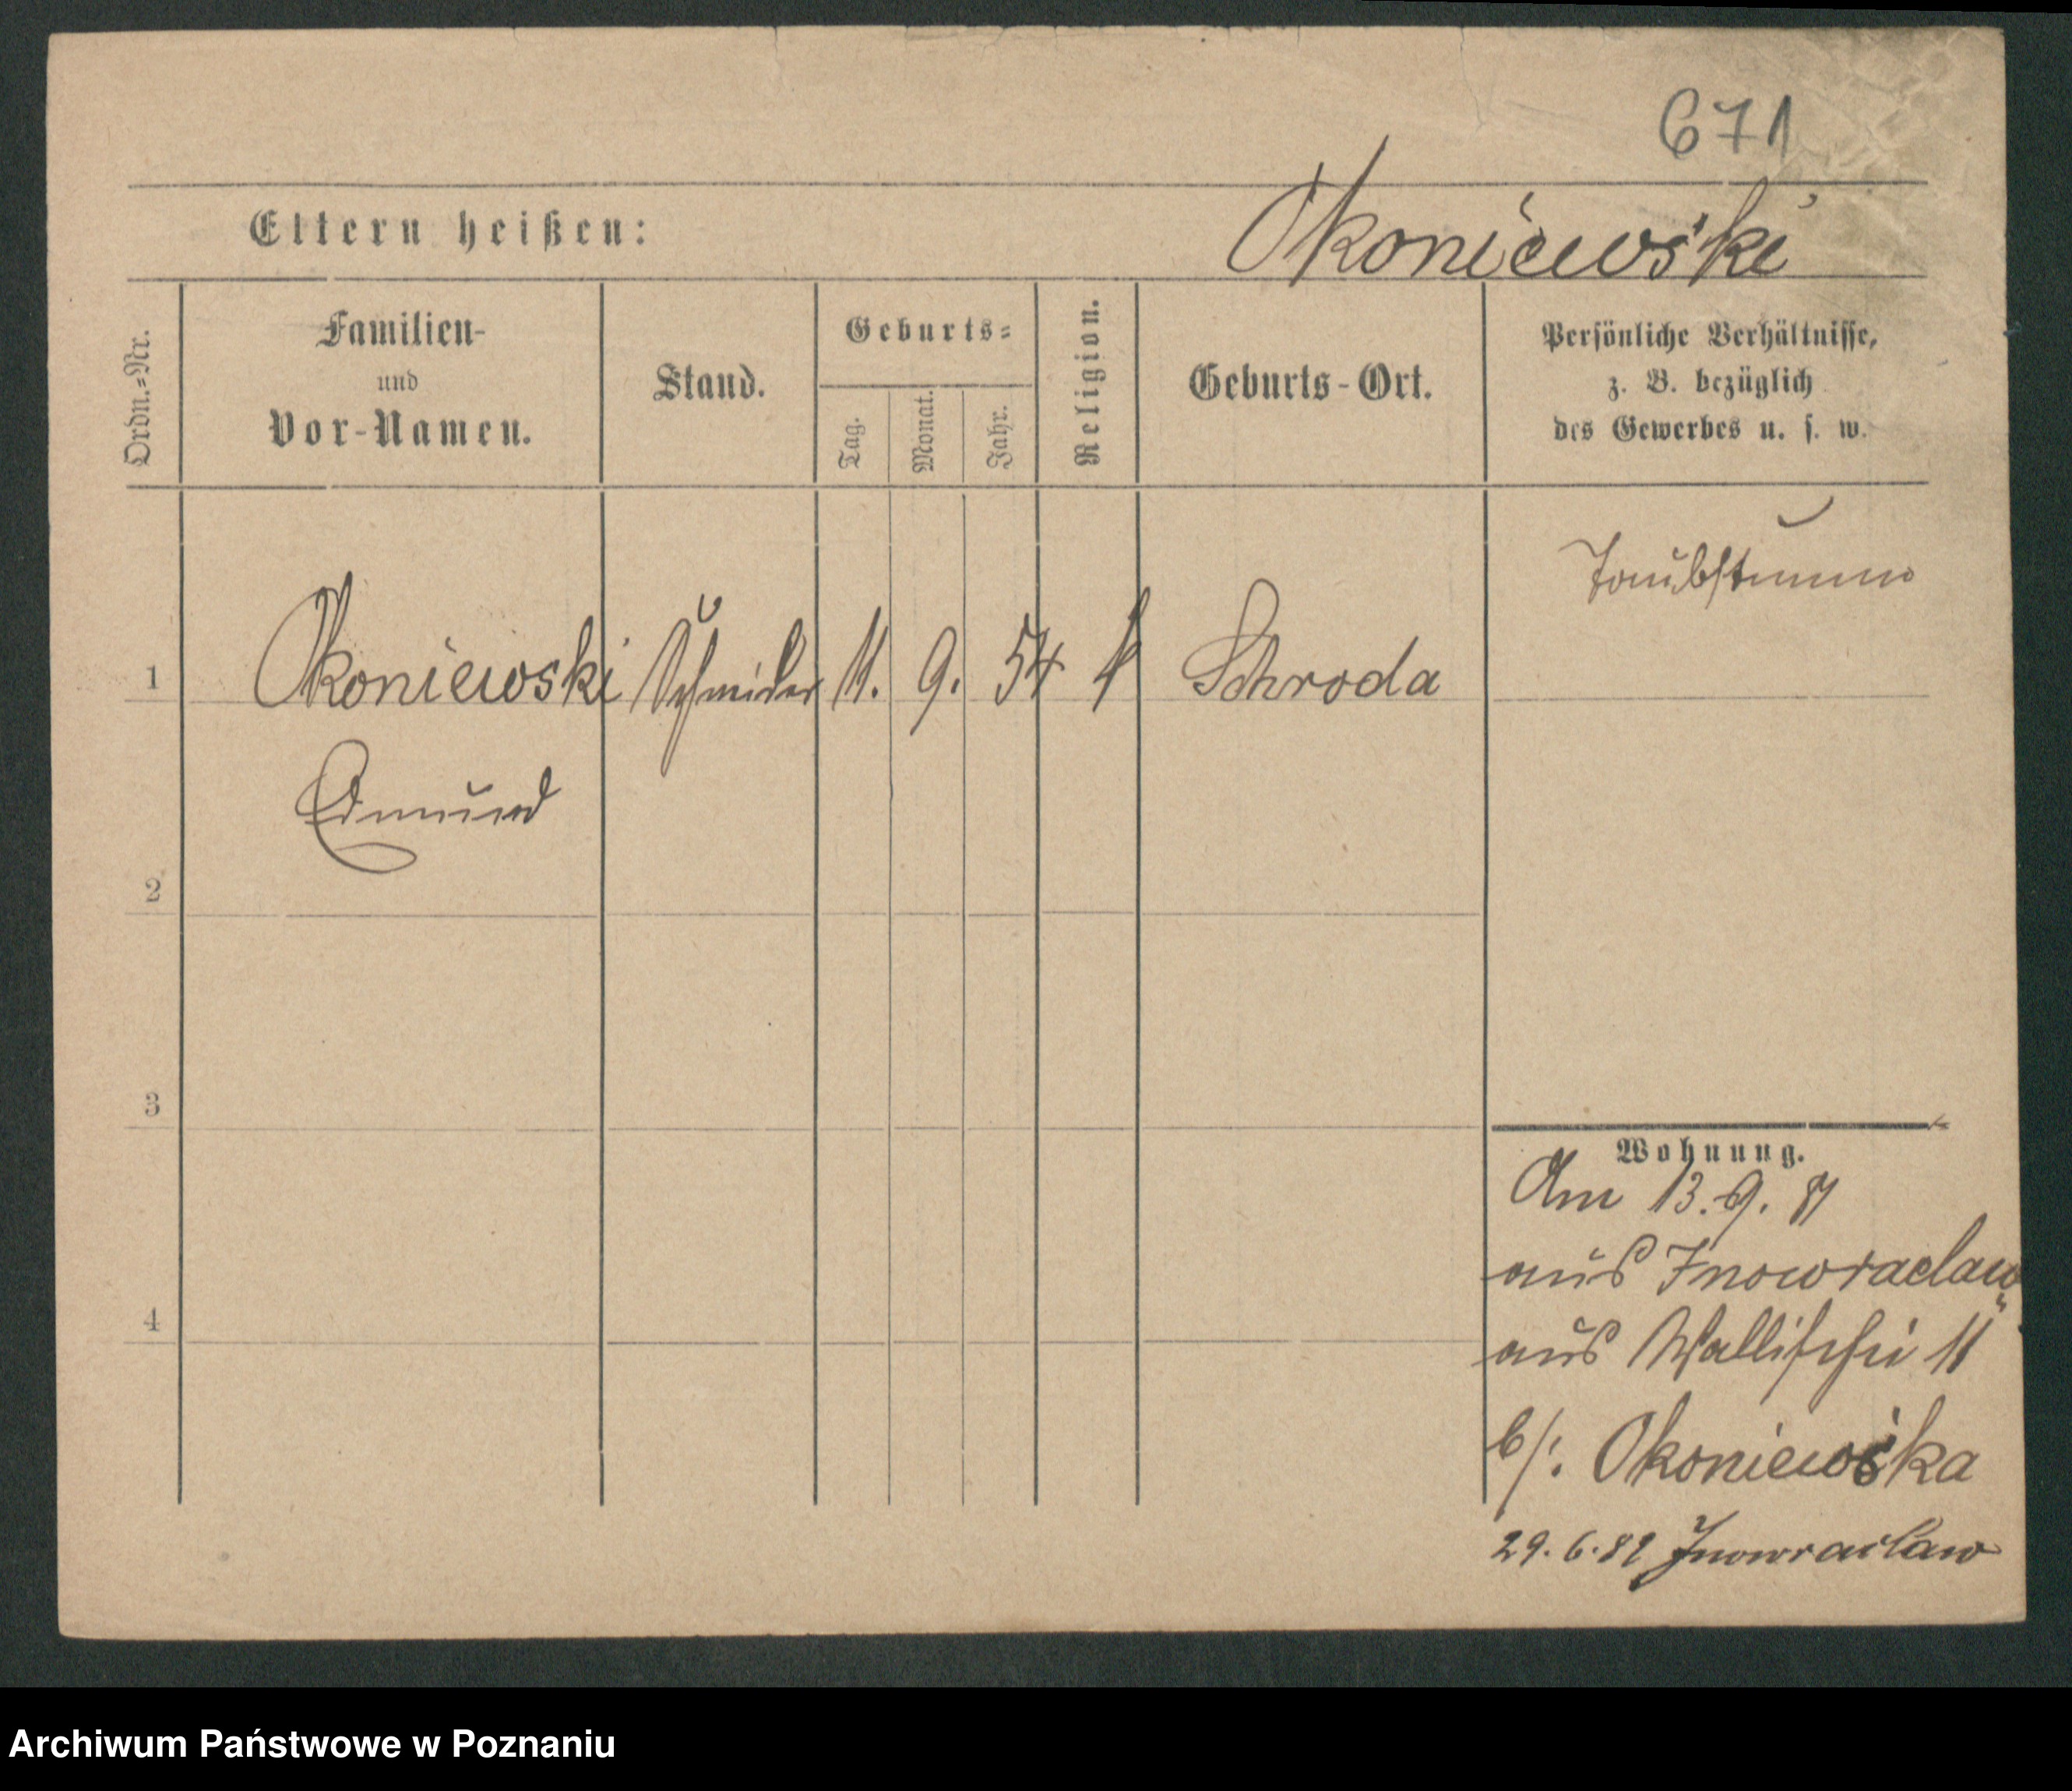 671
Eltern heißen:
Okoniewski
Ordn.=Nr.
Familien-
und
Vor-Namen.
Stand.
Geburts=
Tag.
Monat.
Jahr.
Religion.
Geburts-Ort.
Persönliche Verhältnisse,
z. B. bezüglich
des Gewerbes u. s. w.
Taubstumm
1 Okoniewski Schneider 11. 9. 54 k Schroda
Edmund
2
3
4
Wohnung.
Am 13. 9.
aus Inowraclaw
aus Wallischei 11
b/: Okoniewska
29. 6. Inowraclaw
Archiwum Państwowe w Poznaniu